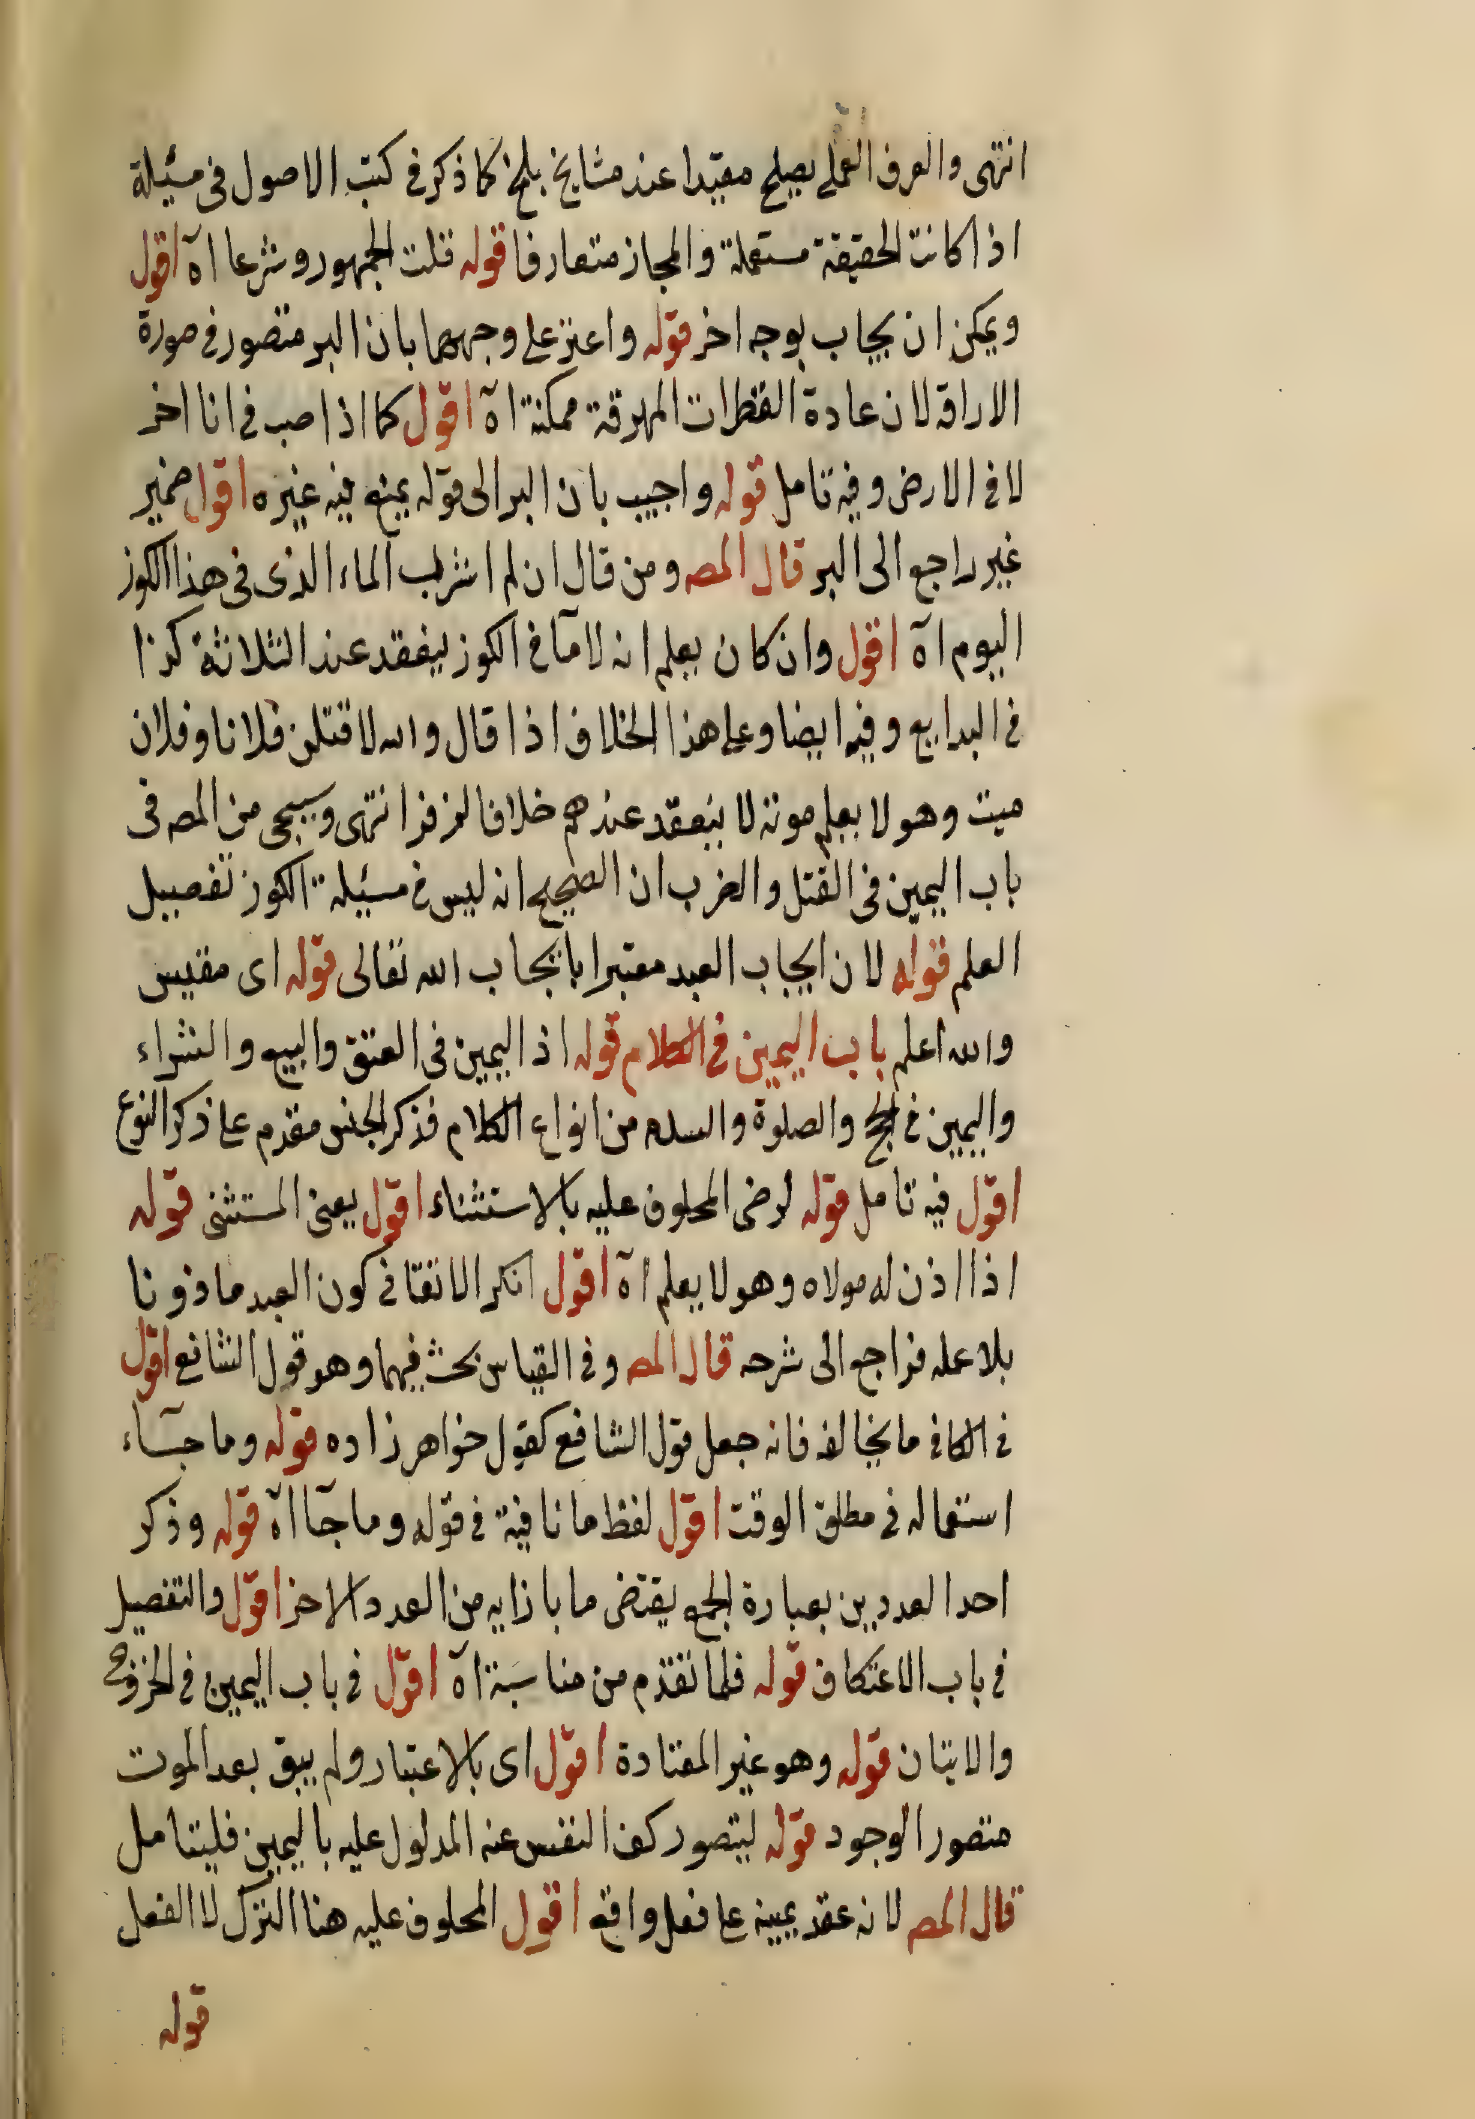 انتهى والعرف العملى يصلح مقيدا عند مشايخ بلخ كما ذكر فى كتب الاصول فى مسئلة
اذا كانت الحقيقة مستعملة والمجاز متعارفا قوله قلت الجمهور وشرعا اه اقول
ويمكن ان يجاب بوجه اخر قوله واعتز على وجههما بان البر متصور فى صورة
الاراقة لان عادة القطرات المهرقة ممكنة اه اقول كما اذا صب فى انا اخر
لا فى الارض وفيه تامل قوله واجيب بان البر الى قوله يمنع فيه غيره اقول ضمير
غير راجع الى البر قال المص ومن قال ان لم اشرب الماء الذى فى هذا الكوز
اليوم اه اقول وان كان يعلم انه لا مآ فى الكوز ينعقد عند الثلاثة كذا
فى البدايع وفيه ايضا وعلى هذا الخلاف اذا قال والله لاقتلن فلانا وفلان
ميت وهو لا يعلم موته لا ينعقد عندهم خلافا لزفر انتهى وسيجى من المص فى
باب اليمين فى القتل والضرب ان الصحيح انه ليس فى مسئلة الكوز تفصيل
العلم قوله لان ايجاب العبد معتبرا بايجاب الله تعالى قوله اى مقيس
والله اعلم باب اليمين فى الكلام قوله اذ اليمين فى العتق والبيع والشراء
واليمين فى الحج والصلوة والسلام من انواع الكلام فذكر الجنس مقدم على ذكر النوع
اقول فيه تامل قوله لرضى المحلوف عليه بالاستثناء اقول يعنى المستثنى قوله
اذا اذن له مولاه وهو لا يعلم اه اقول انكر الاتقا فى كون العبد ماذونا
بلا علمه فراجع الى شرحه قال المص وفى القياس بحث فيهما وهو قول الشافع اقول
فى الكافى ما يخالفه فانه جعل قول الشافع كقول خواهر زاده قوله وما جآء
استعماله فى مطلق الوقت اقول لفظ ما نافية فى قوله وما جآ اه قوله وذكر
احد العددين بعبارة الجمع يقتضى ما بازايه من العدد الاخر اقول والتفصيل
فى باب الاعتكاف قوله فلما تقدم من مناسبة اه اقول فى باب اليمين فى الخروج
والاتيان قوله وهو غير المعتادة اقول اى بالاعتبار ولم يبق بعد الموت
متصور الوجود قوله ليتصور كف النفس عنه المدلول عليه باليمين فليتامل
قال المص لانه عقد يمينه على فعل واقع اقول المحلوف عليه هنا الترك لا الفعل
قوله